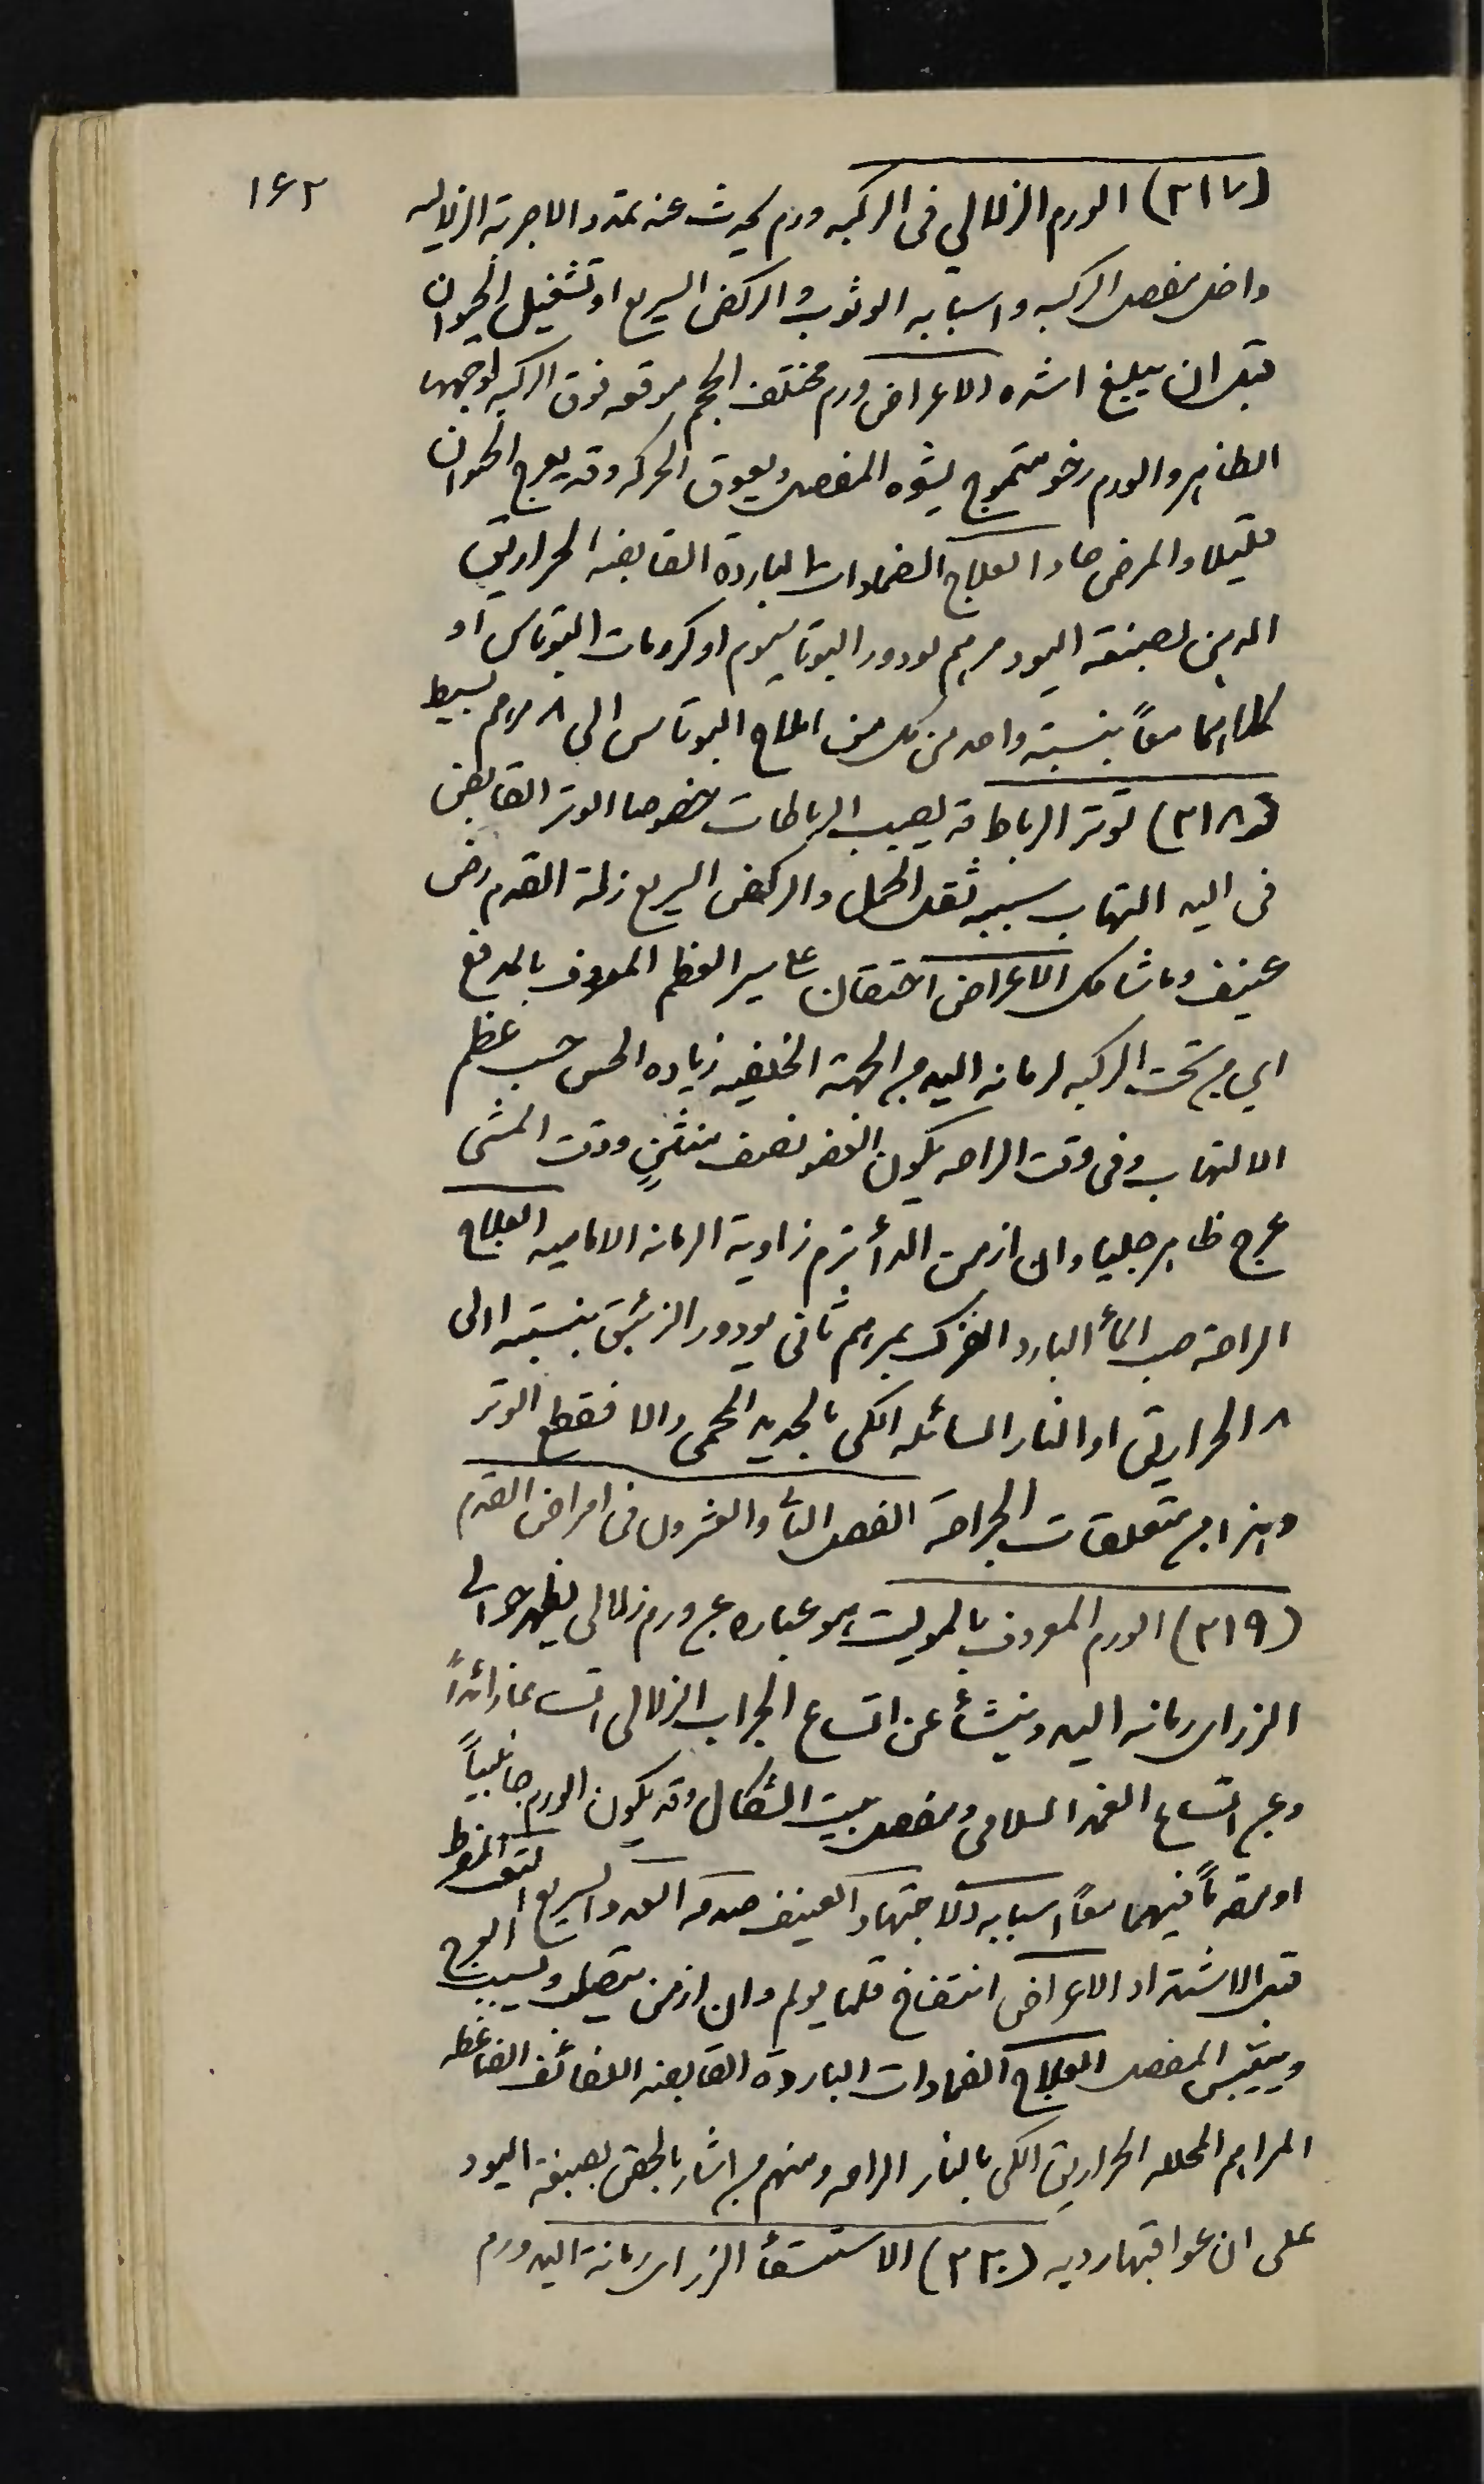 ١٦٢
(٣١٧) الورم الزلالي فى الركبه ورم يحدث عنه تمدد الاجربة الزلاليه
داخل مفصل الركبه واسبابه الوثوب والركض السريع او تشغيل الحيوان
قبل ان يبلغ اشده الاعراض ورم مختلف الحجم موقعه فوق الركبه لوجهها
الظاهر والورم رخو متموج يشوه المفصل ويعوق الحركه وقد يعرج الحيوان
قليلا والمرض حاد العلاج الضمادات الباردة القابضه الحراريق
الدهن بصبغة اليود مرهم يودور البوتاسيوم او كرومات البوتاس او
كلاهما معاً بنسبة واحد من كل من املاح البوتاس الى ٨ مرهم بسيط
(٣١٨) توتر الرباط قد يصيب الرباطات خصوصا الوتر القابض
فى اليد التهاب سببه ثقل الحمل والركض السريع زلة القدم رض
عنيف وما شاكل الاعراض احتقان على سير العظم المعروف بالمدفع
اي من تحت الركبه لرمانه اليد من الجهة الخلفيه زياده الحس حسب عظم
الالتهاب وفى وقت الراحه يكون العضو نصف منثنٍ ووقت المشى
عرج ظاهر جليا وان ازمن الدأ ترم زاوية الرمانه الاماميه العلاج
الراحة صب المأ البارد الفرك بمرهم ثانى يودور الزئبق بنسبة ١ الى
٨ الحراريق او النار السائله الكى بالحديد المحمى والا فقطع الوتر
وهذا من متعلقات الجراحة الفصل الثا والعشرون فى امراض القدم
(٣١٩) الورم المعروف بالموليت هو عباره عن ورم زلالى يظهر حوالى
الزر اى رمانه اليد وينشأ عن اتساع الجراب الزلالى اتساعا زائداً
وعن اتساع الغمد السلامى ومفصل بيت الشكال وقد يكون الورم جانبياً
او مقدماً فيهما معاً اسبابه الاجتهاد العنيف صدمه العدو السريع التعب المفرط
قبل الاشتداد الاعراض انتفاخ قلما يولم وان ازمن يتصلب ويسبب العرج
وييبس المفصل العلاج الضمادات الباردة القابضه اللفائف الضاغطه
المراهم المحلله الحراريق الكى بالنار الراحه ومنهم من اشار بالحقن بصبغة اليود
على ان عواقبها رديه (٣٢٠) الاستسقأ الزر اى رمانة اليد ورم